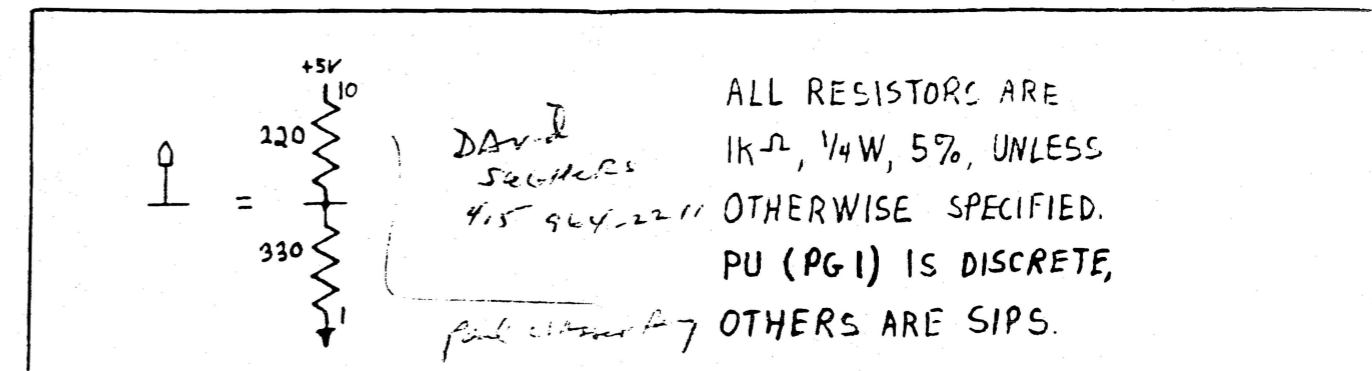 +5V
10
220
=
330
1
DAvid
415 964-2211
Paul
ALL RESISTORS ARE
1KΩ, 1/4W, 5%, UNLESS
OTHERWISE SPECIFIED.
PU (PG 1) IS DISCRETE,
OTHERS ARE SIPS.